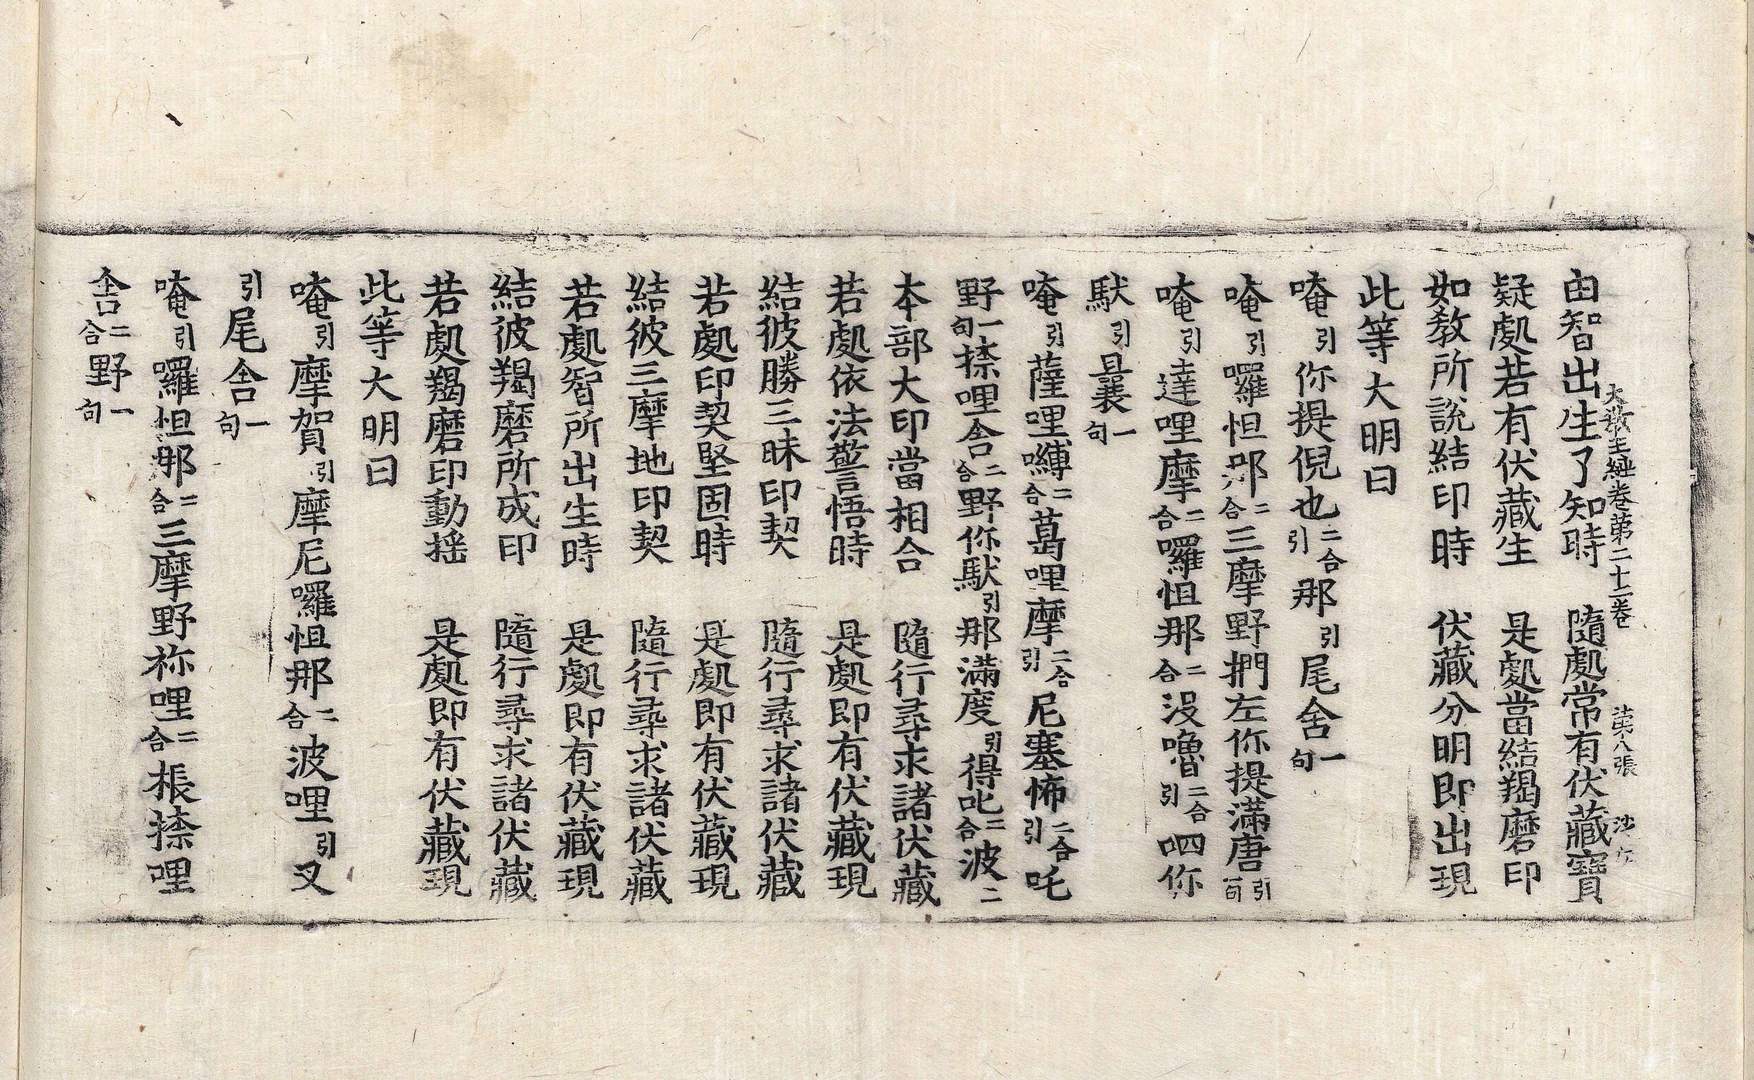 大教王經卷第二十二卷 第八張 沙
由智出生了知時 隨處常有伏藏寶
疑處若有伏藏生 是處當結羯磨印
如教所說結印時 伏藏分明即出現
此等大明曰
唵引你提倪也二合引那引尾舍一句
唵引囉怛那二合三摩野捫左你提滿唐引一句
唵引達哩摩二合囉怛那二合沒嚕二合引呬你
馱引曩一句
唵引薩哩嚩二合葛哩摩二合引尼塞怖二合引吒
野一句捺哩舍二合野你馱引那滿度引得叱二合波二
本部大印當相合 隨行尋求諸伏藏
若處依法警悟時 是處即有伏藏現
結彼勝三昧印契 隨行尋求諸伏藏
若處印契堅固時 是處即有伏藏現
結彼三摩地印契 隨行尋求諸伏藏
若處智所出生時 是處即有伏藏現
結彼羯磨所成印 隨行尋求諸伏藏
若處羯磨印動搖 是處即有伏藏現
此等大明曰
唵引摩賀引摩尼囉怛那二合波哩引叉
引尾舍一句
唵引囉怛那二合三摩野祢哩二合棖捺哩
舍二合野一句